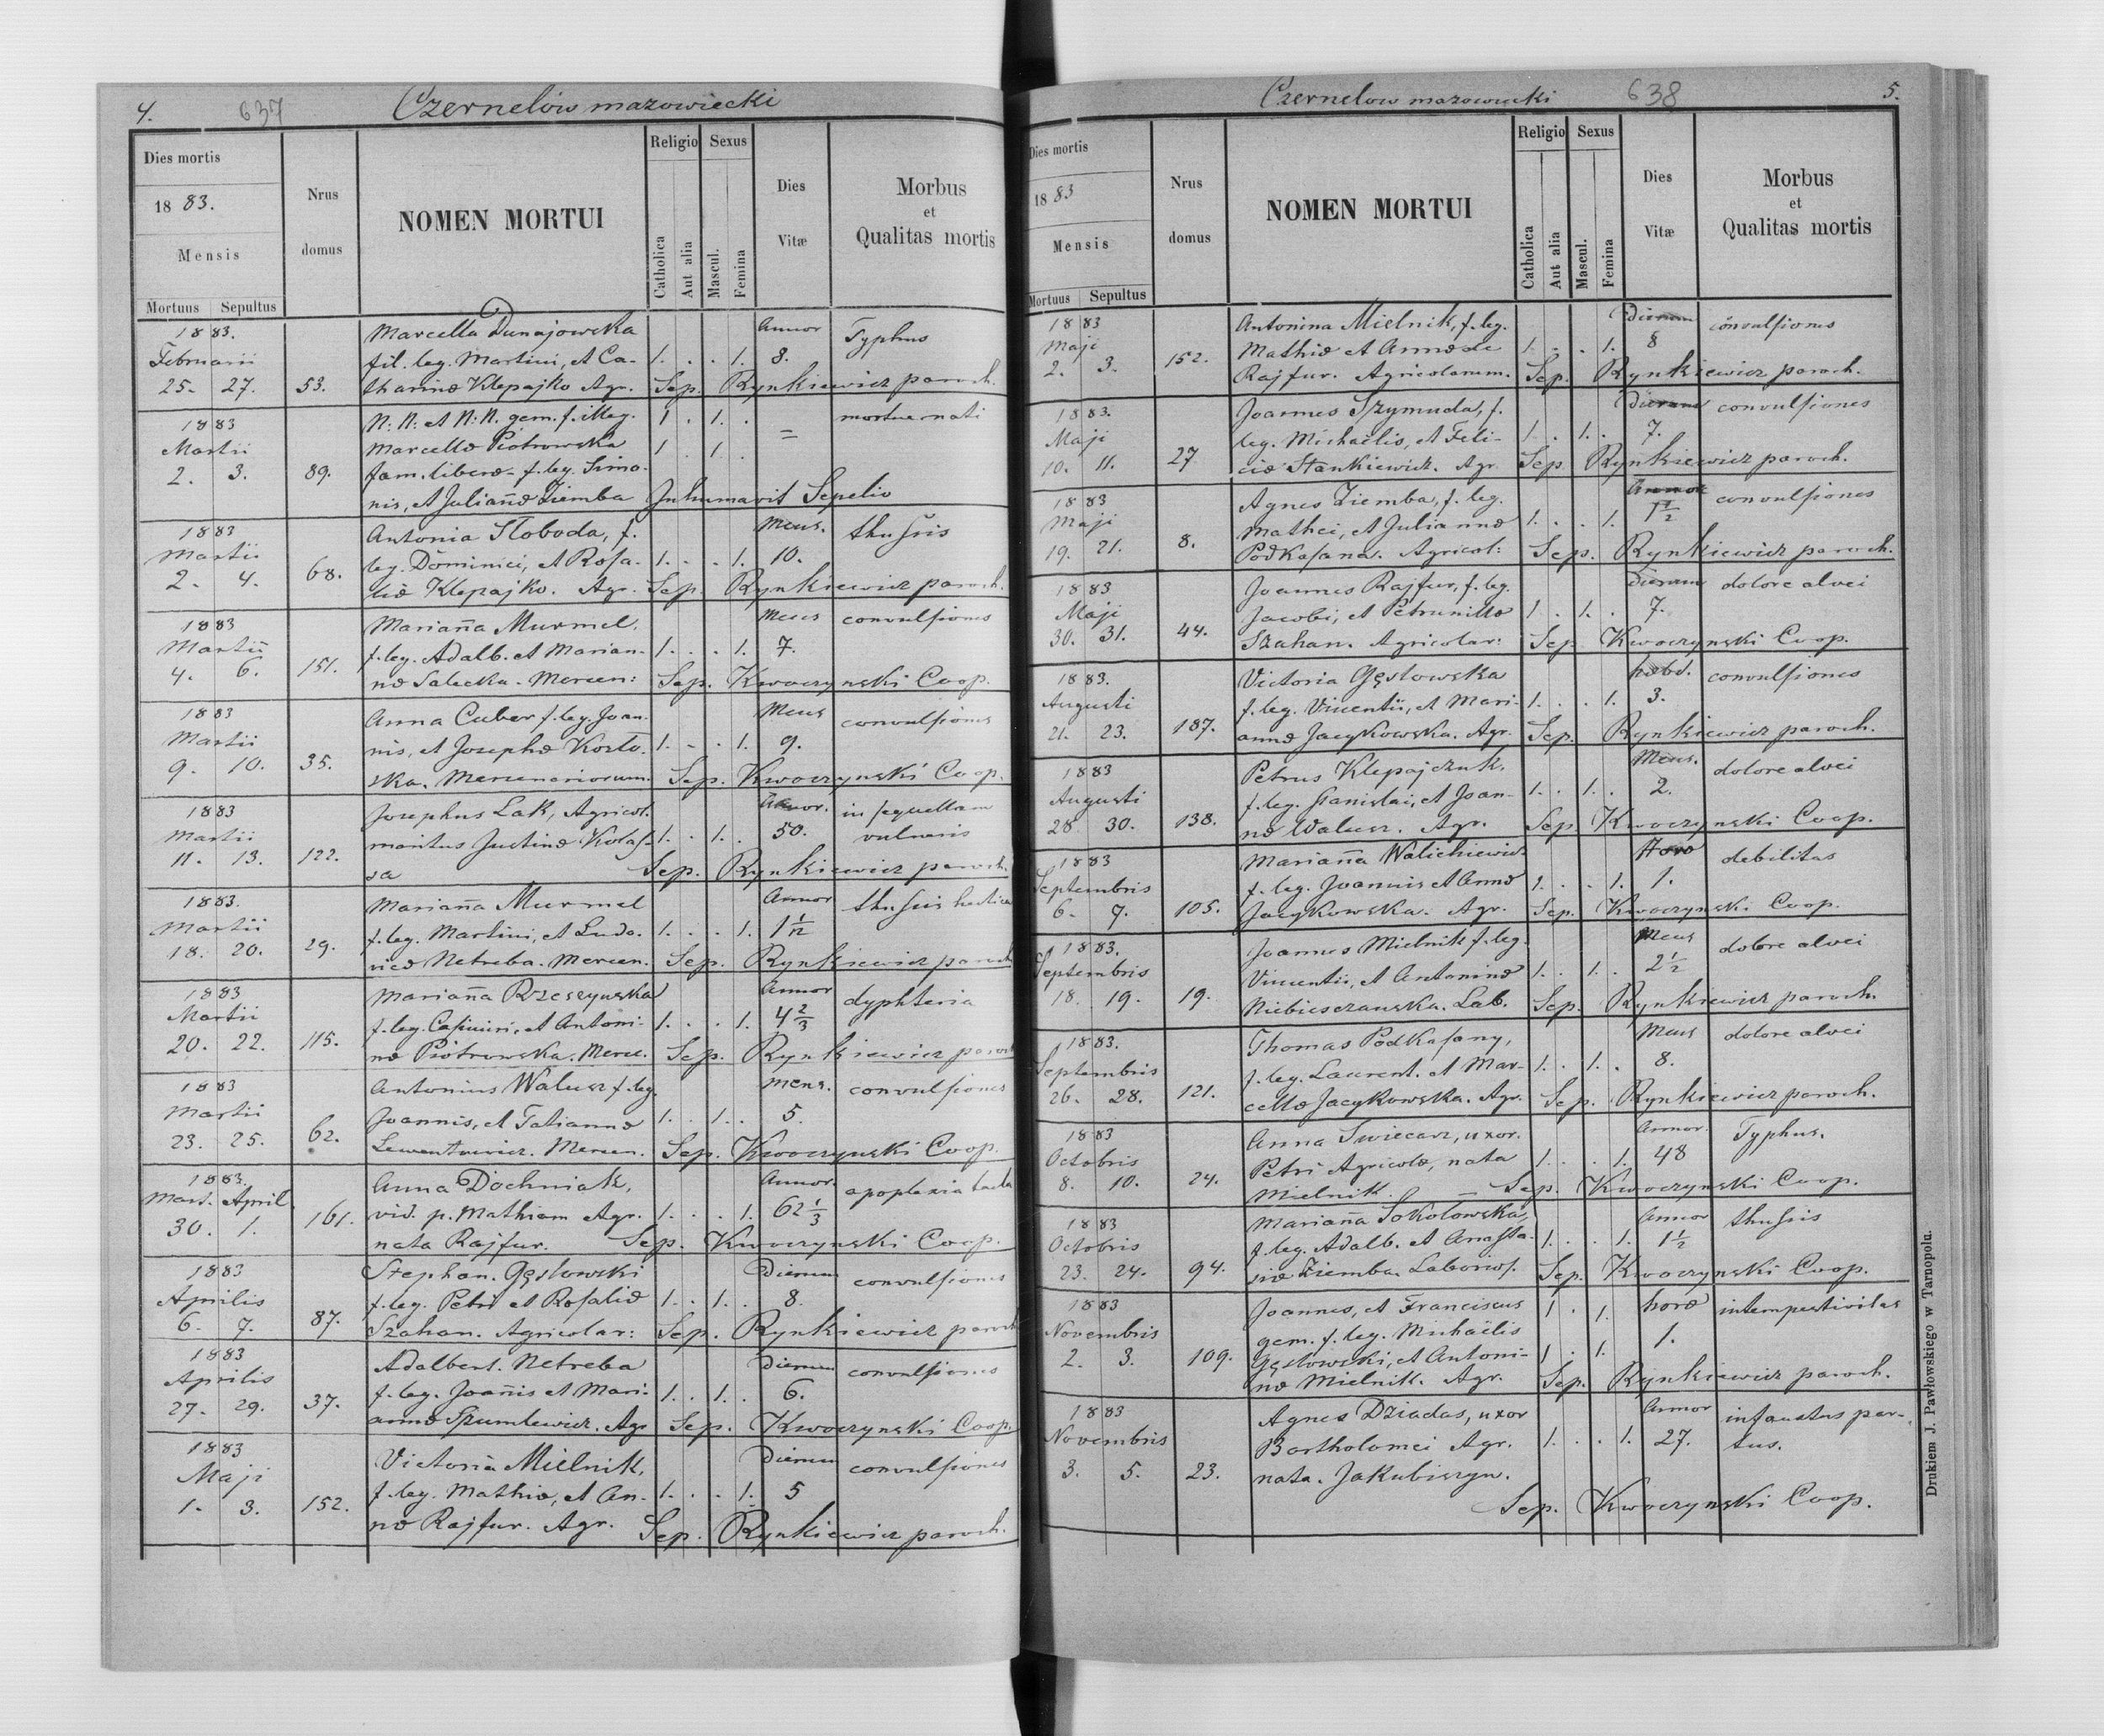 4. 637 Czernelów mazowiecki
Dies mortis
18 83.
Mensis
Mortuus Sepultus
Nrus domus
NOMEN MORTUI
Religio
Catholica
Aut alia
Sexus
Mascul.
Femina
Dies Vitæ
Morbus
et
Qualitas mortis
1883. Marcella Dunajowska Annor Typhus
Februarii fil. leg. Martini, et Ca- 1. . . 1. 8.
25. 27. 53. tharinæ Klepajko Agr. Sep. Rynkiewicz paroch.
1883 N: N: et N: N. gem. f. illeg. 1 . 1. . mortue nati
Martii Marcellæ Piotrowska 1 . 1. . =
2. 3. 89. fam. liberæ - f. leg. Simo-
nis, et Juliañæ Ziemba Inhumavit Sepelio
1883 Antonia Sloboda, f. Mens. thussis
Martii leg. Dominici, et Rosa- 1. . . 1. 10.
2. 4. 68. liæ Klepajko. Agr. Sep. Rynkiewicz paroch.
1883 Mariaña Murmel. Mens convulsiones
Martii f. leg. Adalb. et Marian- 1. . . 1. 7.
4. 6. 151. næ Salecka. Mercen: Sep. Kwoczynski Coop.
1883 Anna Cuber f. leg. Joan- Mens convulsiones
Martii nis, et Josephæ Kozło- 1. . . 1. 9.
9. 10. 35. ska. Mercenariorum. Sep. Kwoczynski Coop.
1883 Josephus Lak, Agricol. Annor. in sequellam
Martii maritus Justinæ 1. . 1. . 50. vulneris
11. 13. 122. sa Sep. Rynkiewicz paroch.
1883. Mariaña Murmel Annor thussis hectica
Martii f. leg. Martini, et Ludo- 1. . . 1. 1 1/12
18. 20. 29. vicæ Netreba. Mercen. Sep. Rynkiewicz paroch
1883 Mariaña Rzeszynska Annor dyphteria
Martii f. leg. Casimiri, et Antoni- 1. . . 1. 4 2/3
20. 22. 115. næ Piotrowska. Merce. Sep. Rynkiewicz paroch
1883 Antonius Walusz f. leg. Mens. convulsiones
Martii Joannis, et Tatiannæ 1. . 1. . 5.
23. 25. 62. Lewentowicz. Mercen. Sep. Kwoczynski Coop.
1883. Anna Dochniak, Annor. apoplexia tacta
Mart. April. vid. p. Mathiam Agr. 1. . . 1. 62 1/3
30. 1. 161. nata Rajfur. Sep. Kwoczynski Coop.
1883 Stephan. Gęstowski Dierum convulsiones
Aprilis f. leg. Petri et Rosaliæ 1. . 1. . 8.
6. 7. 87. Szahan. Agricolar: Sep. Rynkiewicz paroch
1883 Adalbert. Netreba Dierum convulsiones
Aprilis f. leg. Joañis et Mari- 1. . 1. . 6.
27. 29. 37. annæ Szumlewicz. Agr Sep. Kwoczynski Coop.
1883 Victoria Mielnik, Dierum convulsiones
Maji f. leg. Mathiæ, et An- 1. . . 1. 5
1. 3. 152. næ Rajfur. Agr. Sep. Rynkiewicz paroch.
Czernelow mazowiecki 638 5.
Dies mortis
18 83
Mensis
Mortuus Sepultus
Nrus domus
NOMEN MORTUI
Religio
Catholica
Aut alia
Sexus
Mascul.
Femina
Dies Vitæ
Morbus
et
Qualitas mortis
1883 Antonina Mielnik, f. leg. Dierum convulsiones
Maji Mathiæ et Annæ de 1. . . 1. 8
2. 3. 152. Rajfur. Agricolarum. Sep. Rynkiewicz paroch.
1883. Joannes Szymuda, f. Dierum convulsiones
Maji leg. Michaëlis, et Feli- 1. . 1. . 7.
10. 11. 27 ciæ Stankiewicz. Agr. Sep. Rynkiewicz paroch.
1883 Agnes Ziemba, f. leg. Annor convulsiones
Maji Mathei, et Juliannæ 1. . . 1. 1 1/2
19. 21. 8. Podkasana. Agricol: Sep. Rynkiewicz paroch.
1883 Joannes Rajfur, f. leg. Dierum dolore alvei
Maji Jacobi, et Petrunillæ 1. . 1. . 7.
30. 31. 44. Szahan. Agricolar: Sep Kwoczynski Coop.
1883. Victoria Gęstowska hebd. convulsiones
Augusti f. leg. Vincentii, et Mari- 1. . . 1. 3.
21. 23. 187. annæ Jacykowska. Agr. Sep. Rynkiewicz paroch.
1883 Petrus Klepajczuk. Mens. dolore alvei
Augusti f. leg. Stanislai, et Joan- 1. . 1. . 2.
28. 30. 138. næ Walusz. Agr. Sep Kwoczynski Coop.
1883 Mariaña Walichiewicz Horæ debilitas
Septembris f. leg. Joannis et Annæ 1. . . 1. 1.
6. 7. 105. Jacykowska. Agr. Sep. Kwoczynski Coop.
1883. Joannes Mielnik f. leg. Mens dolore alvei
Septembris Vincentii, et Antoninæ 1. . 1. . 2 1/2
18. 19. 19. Niebieszczanska. Lab. Sep. Rynkiewicz paroch.
1883. Thomas Podkasany, Mens dolore alvei
Septembris f. leg. Laurent. et Mar- 1. . 1. . 8.
26. 28. 121. cellæ Jacykowska. Agr. Sep. Rynkiewicz paroch.
1883 Anna Swiecarz, uxor. Annor. Typhus.
Octobris Petri Agricolæ, nata 1. . . 1. 48
8. 10. 24. Mielnik. Sep. Kwoczynski Coop.
1883 Mariaña Sokolowska, Annor thussis
Octobris f. leg. Adalb. et Anasta- 1. . . 1. 1 1/2
23. 24. 94. siæ Ziemba. Laborios. Sep. Kwoczynski Coop.
1883 Joannes, et Franciscus 1 . 1. horæ intempestivitas
Novembris gem. f. leg. Michaëlis 1.
2. 3. 109. Gęstowski, et Antoni- 1 . 1.
næ Mielnik. Agr. Sep. Rynkiewicz paroch.
1883 Agnes Dziadas, uxor Annor infaustus par-
Novembris Bartholomei Agr. 1. . . 1. 27. tus.
3. 5. 23. nata. Jakubiszyn.
Sep. Kwoczynski Coop.
Drukiem J. Pawłowskiego w Tarnopolu.